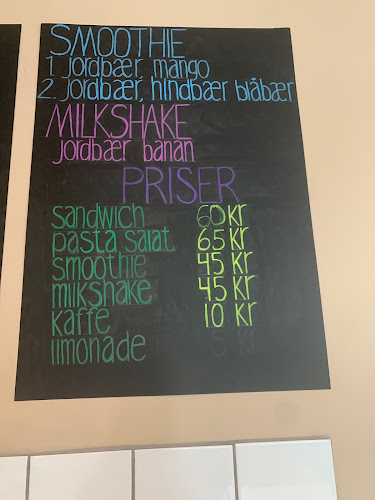 SMOOTHIE
1. jordbær mango
2. jordbær, hindbær blåbær
MILKSHAKE
jordbær banan
PRISER
sandwich 60 kr
pasta salat 65 kr
smoothie 45 kr
milkshake 45 kr
kaffe 10 kr
limonade 5 kr